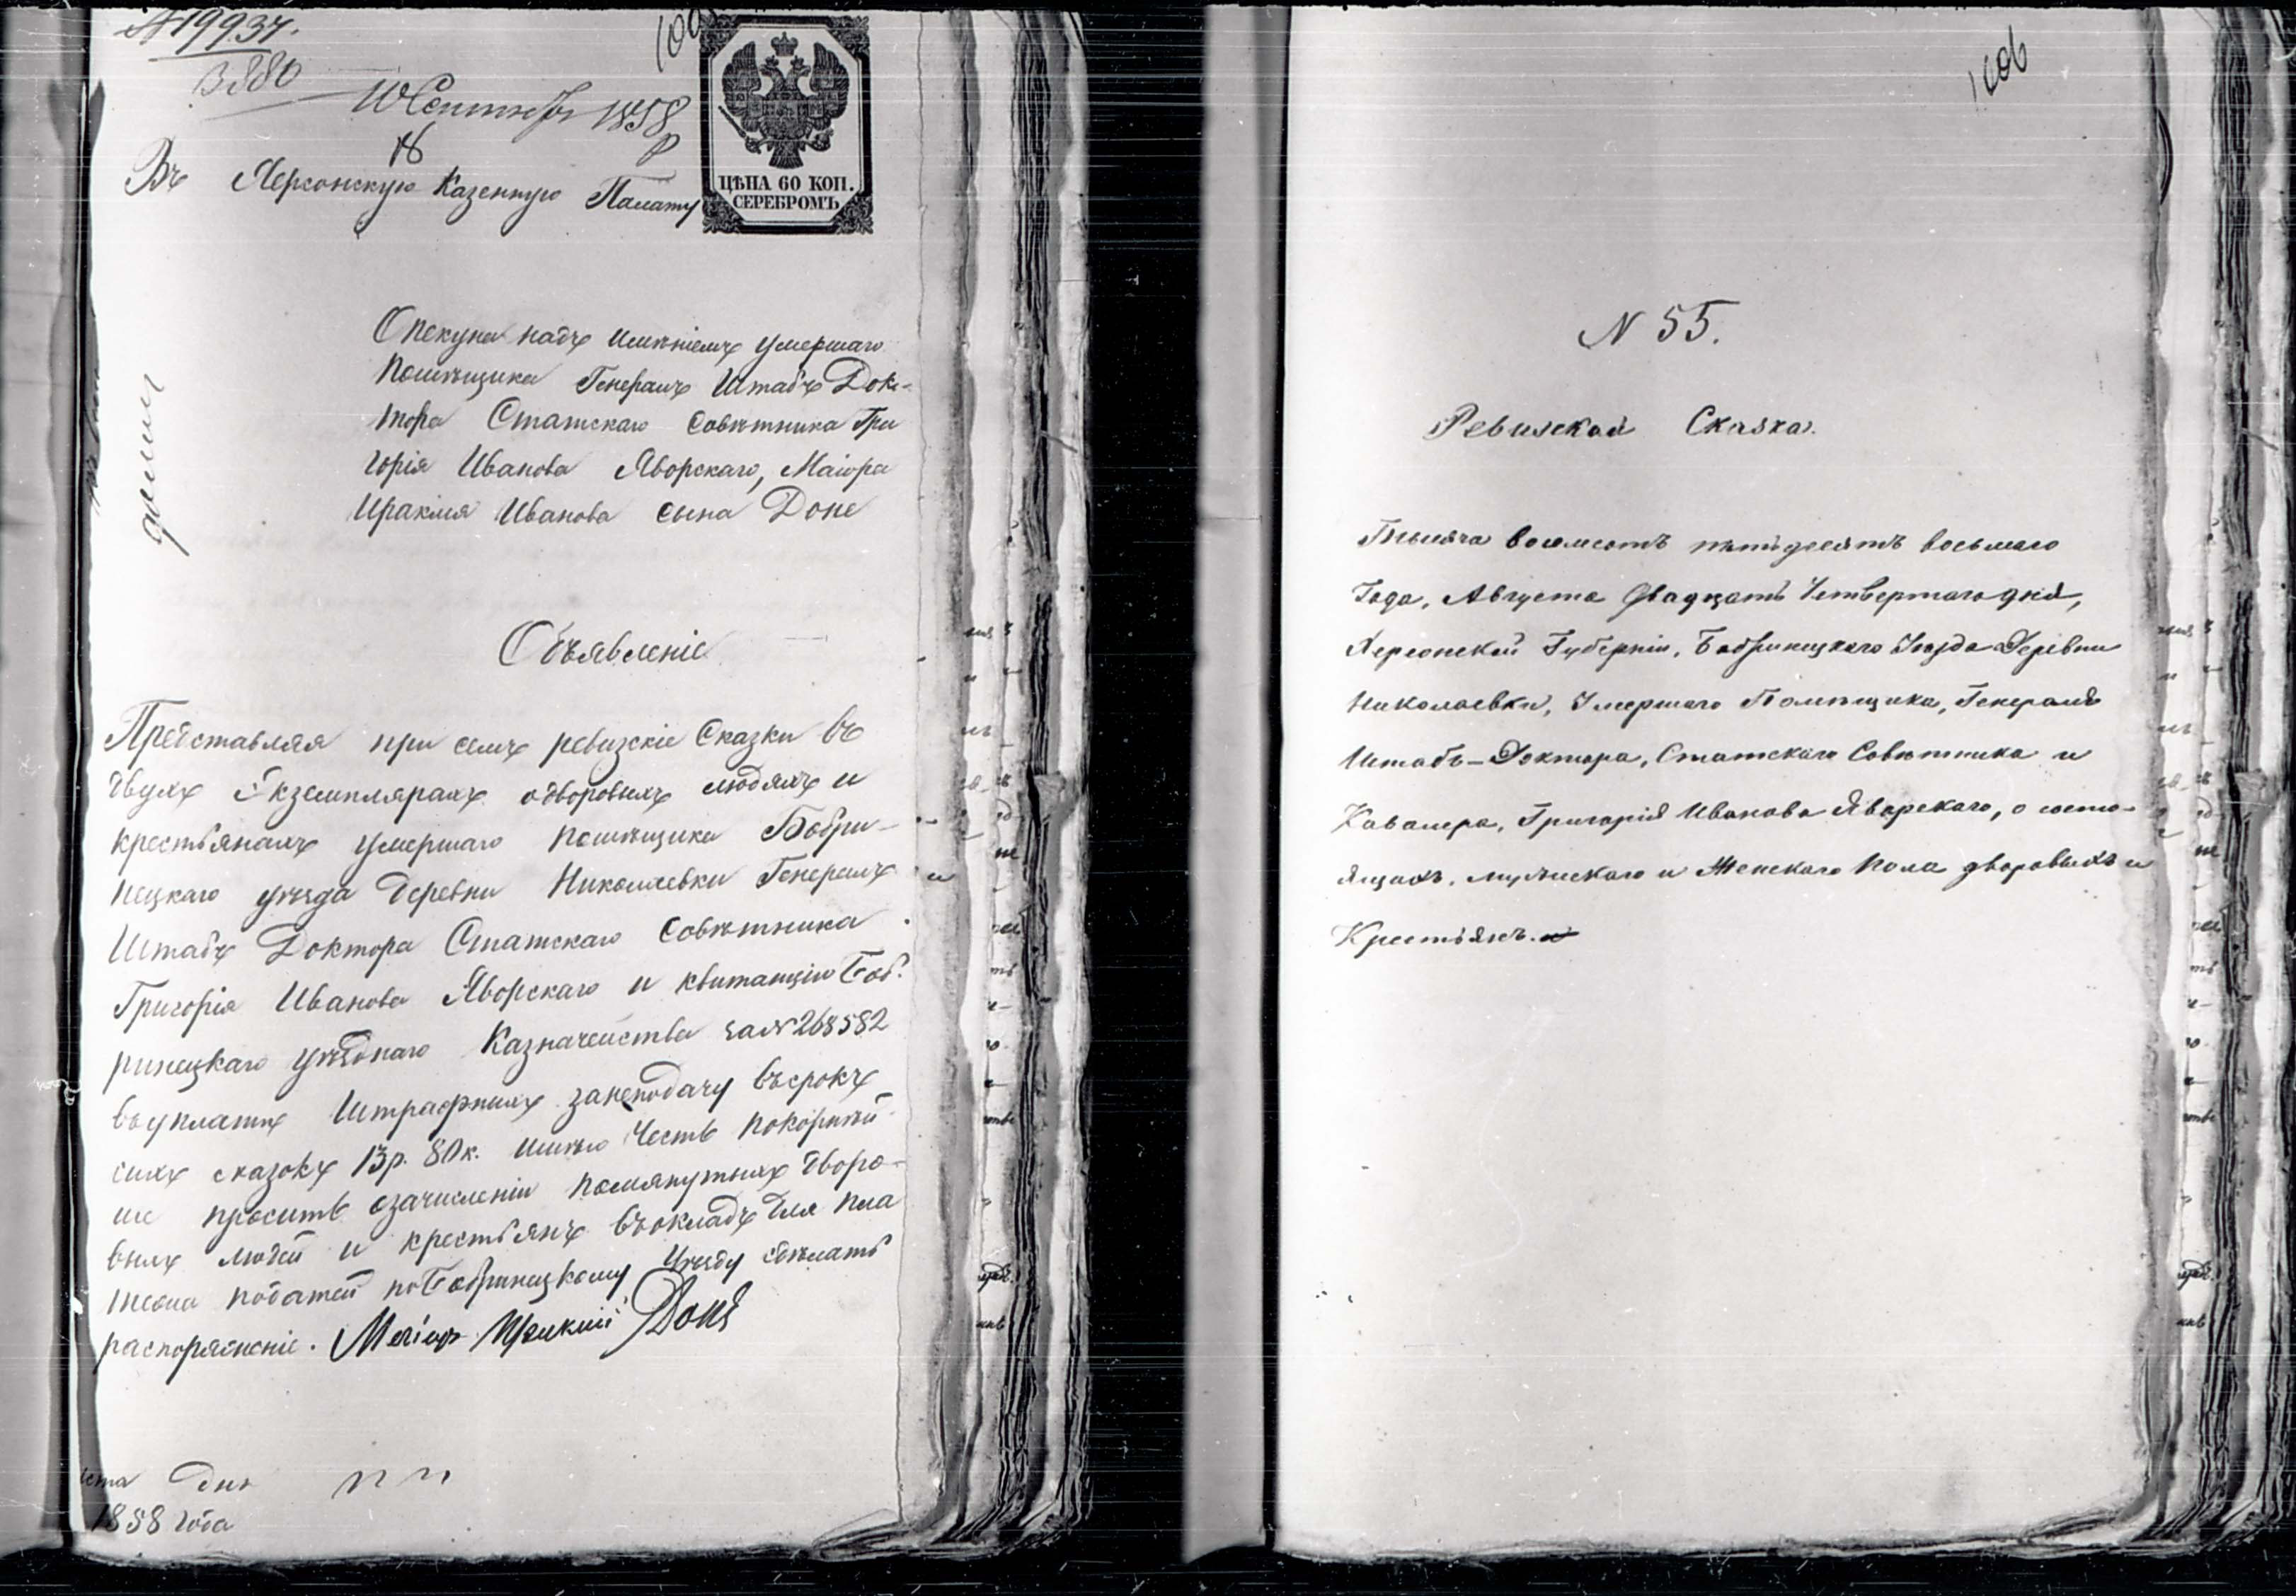 № 19937.
10 Сентября 1858
Въ Херсонскую Казенную Палату
ЦѢНА 60 КОП.
СЕРЕБРОМЪ.
Опекуна надъ имѣніемъ умершаго
Помѣщика Генералъ Штабъ Док-
тора Статскаго Совѣтника Гри
горія Иванова Яворскаго, Маіора
Ираклія Иванова сына Доне
Объявленіе
Представляя при семъ ревизскіе Сказки въ
двухъ Экземплярахъ о дворовыхъ людяхъ и
крестьянахъ умершаго помѣщика Бобри-
нецкаго уѣзда деревни Николаевки Генералъ
Штабъ Доктора Статскаго Совѣтника
Григорія Иванова Яворскаго и квитанцію Боб-
ринецкаго уѣзднаго Казначейства за № 268582
въ уплатѣ Штрафныхъ за неподачу въ срокъ
сихъ сказокъ 13 р. 80 к. имѣю Честь покорнѣй-
ше просить о зачисленіи помянутыхъ дворо-
выхъ людей и крестьянъ въ окладъ для пла
тежа податей по Бобринецкому Уѣзду сдѣлать
распоряженіе. Маіоръ Ираклій Доне
дня
1858 года
1006
N 55.
Ревизская Сказка.
Тысяча восемсотъ пятьдесятъ восьмаго
Года, Августа двадцать Четвертаго дня,
Херсонской Губерніи, Бобринецкаго Уѣзда Деревни
Николаевки, Умершаго Помѣщика, Генералъ
Штабъ-Доктора, Статскаго Совѣтника и
Кавалера, Григорія Иванова Яворскаго, о состо-
ящихъ, мужескаго и Женскаго пола дворовыхъ и
Крестьянъ.